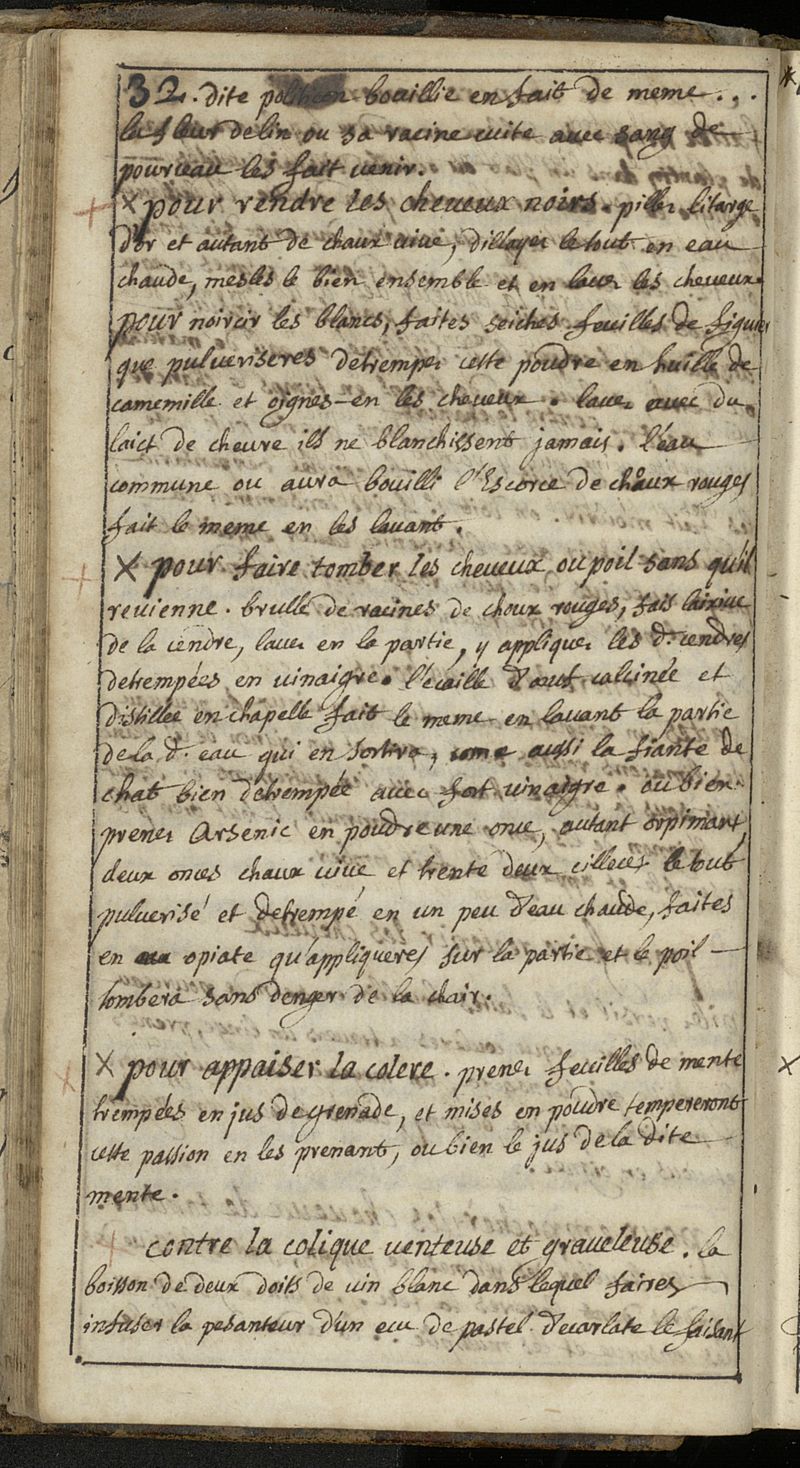 32. dite bouillie en fait de meme...
la fleur de lin ou sa racine cuite avec sang de
pourceau les fait venir.
× pour rendre les cheveux noirs. pilles litarge
d'or et autant de chaux vive, dillayez le tout en eau
chaude, meslés le bien ensemble et en lavez les cheveux.
pour noircir les blancs, faites seiches feuilles de figuier
que pulveriseres detrempez cette poudre en huille de
camemille et oignes-en les cheveux. lavez avec du
laict de chevre ils ne blanchissent jamais. l'eau
commune ou aura bouilli l'Escorce de choux rouges
fait le meme en les lavant.
× pour faire tomber les cheveux ou poil sans qu'il
revienne. brulle de racines de choux rouges, fais laixive
de la cendre, lavez en la partie, y appliquez les d. cendres
detrempées en vinaigre. l'ecaille d'oeuf calcinée et
distillée en chapelle fait le meme en lavant la partie
de la d. eau qui en sortira, come aussi la fiante de
chat bien detrempée avec fort vinaigre. ou bien
prenez Arsenic en poudre une once, autant orpimant,
deux onces chaux vive et trente deux le tout
pulverisé et detrempé en un peu d'eau chaude, faites
en opiate qu'appliqueres sur la partie et le poil
tombera sans denger de la chair.
× pour appaiser la colere. prenez feuilles de mente
trempées en jus de grenade, et mises en poudre tempereront
cette passion en les prenant, ou bien le jus de la dite
mente.
contre la colique venteuse et graveleuse. la
boisson de deux doits de vin blanc dans lequel faires
infuser la pesanteur d'un ecu de pastel d'ecarlate le faisant